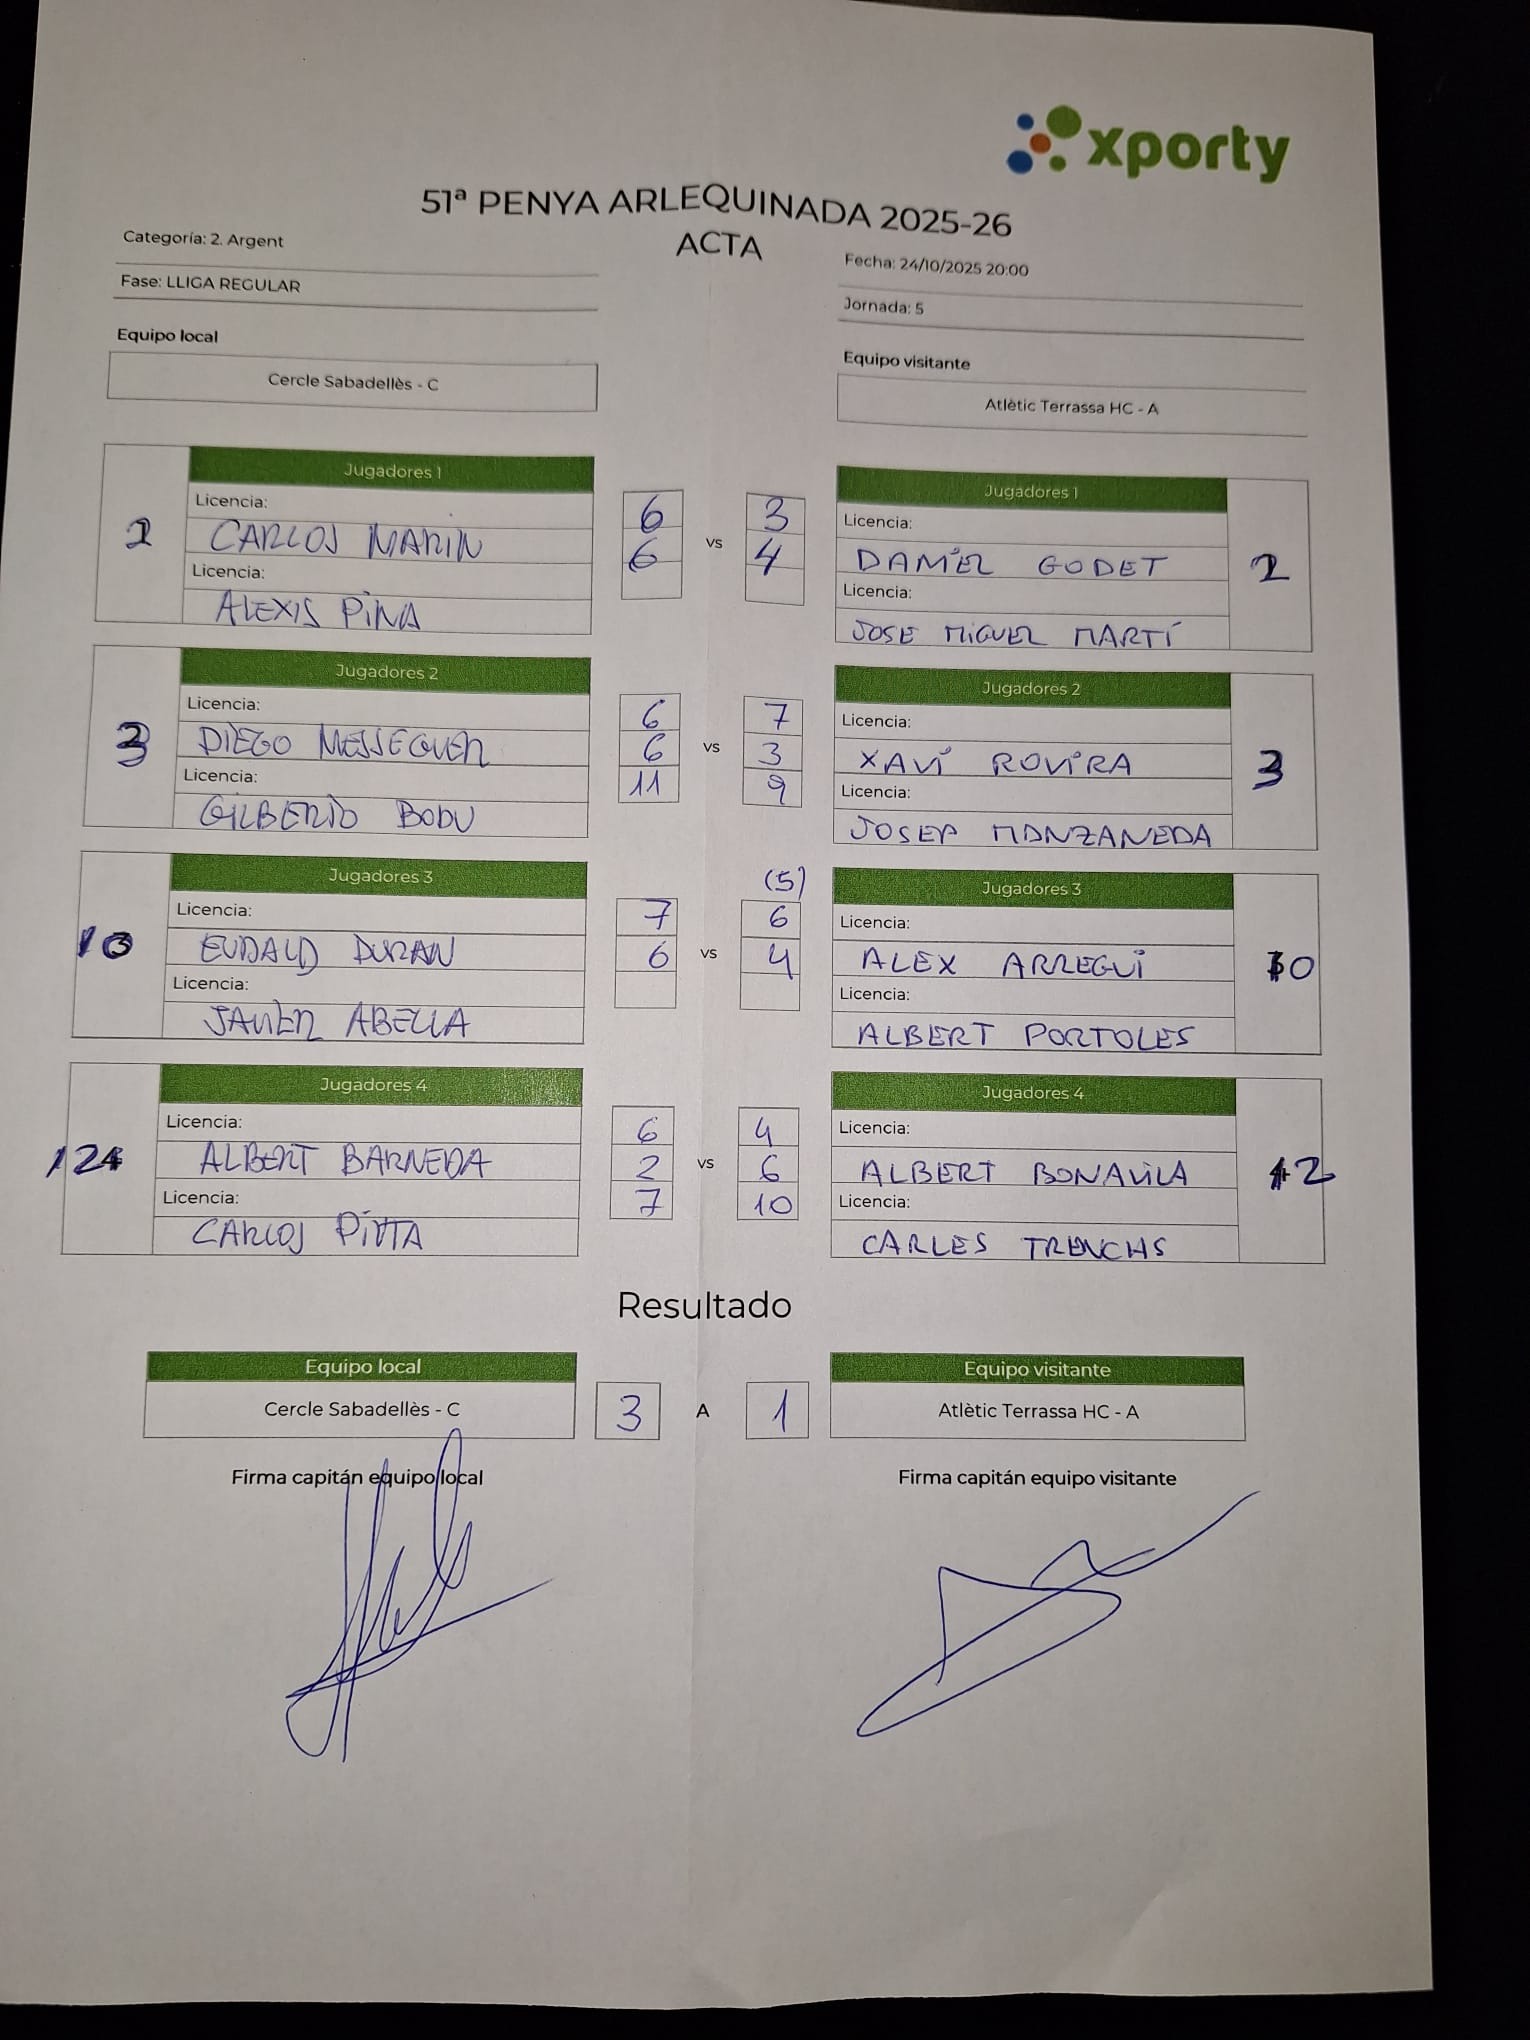 xporty
51ª PENYA ARLEQUINADA 2025-26
ACTA
Categoría: 2. Argent
Fecha: 24/10/2025 20:00
Fase: LLIGA REGULAR
Jornada: 5
Equipo local
Equipo visitante
Cercle Sabadellès - C
Atlètic Terrassa HC - A
Jugadores 1
Licencia:
CARLOS MARIN
Licencia:
ALEXIS PINA
2
6 vs 3
6 4
Jugadores 1
Licencia:
DANIEL GODET
Licencia:
JOSE MIGUEL MARTÍ
2
Jugadores 2
Licencia:
DIEGO MESSEGUER
Licencia:
GILBERTO BODU
3
6 7
6 vs 3
11 9
Jugadores 2
Licencia:
XAVI ROVIRA
Licencia:
JOSEP MANZANEDA
3
Jugadores 3
Licencia:
EUDALD DURAN
Licencia:
JAVIER ABELLA
10
(5)
7 6
6 vs 4
Jugadores 3
Licencia:
ALEX ARREGUI
Licencia:
ALBERT PORTOLES
10
Jugadores 4
Licencia:
ALBERT BARNEDA
Licencia:
CARLOS PINTA
12
6 4
2 vs 6
7 10
Jugadores 4
Licencia:
ALBERT BONAVILA
Licencia:
CARLES TRENCHS
12
Resultado
Equipo local
Equipo visitante
Cercle Sabadellès - C
3 A 1
Atlètic Terrassa HC - A
Firma capitán equipo local
Firma capitán equipo visitante